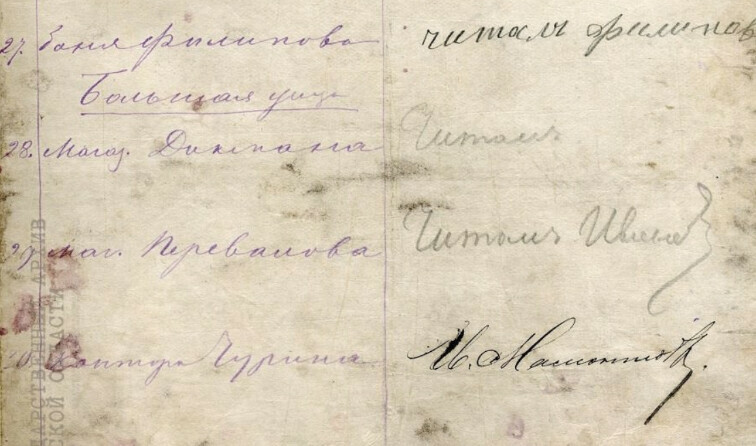 27. Баня Филипова читалъ Филипов
Большая улица
28. Магаз. Дикмана Читалъ
29 маг. Перевалова Читалъ
30 Контора Чурина. М.
ДАРСТВЕННЫЙ АРХИВ
СКОЙ ОБЛАСТИ